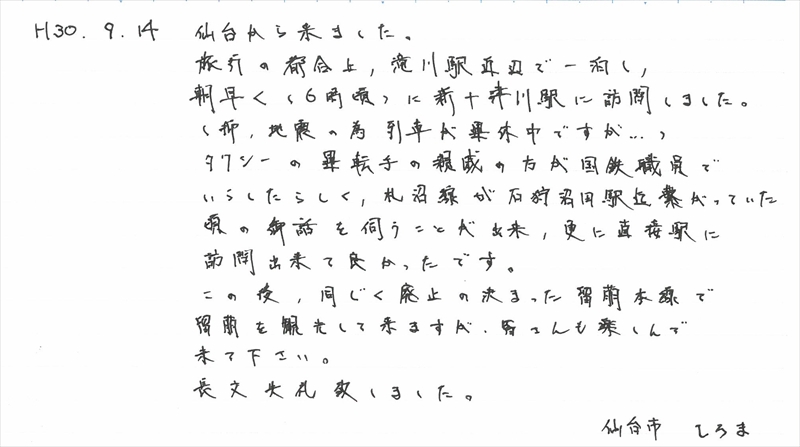 H30. 9. 14 仙台から来ました。
旅行の都合上,滝川駅近辺で一泊し,
朝早く(6時頃)に新十津川駅に訪問しました。
(抑,地震の為列車が運休中ですが…)
タクシーの運転手の親戚の方が国鉄職員で
いらしたらしく,札沼線が石狩沼田駅迄繋がっていた
頃の御話を伺うことが出来,更に直接駅に
訪問出来て良かったです。
この後,同じく廃止の決まった留萌本線で
留萌を観光して来ますが,皆さんも楽しんで
来て下さい。
長文失礼致しました。
仙台市 しろま